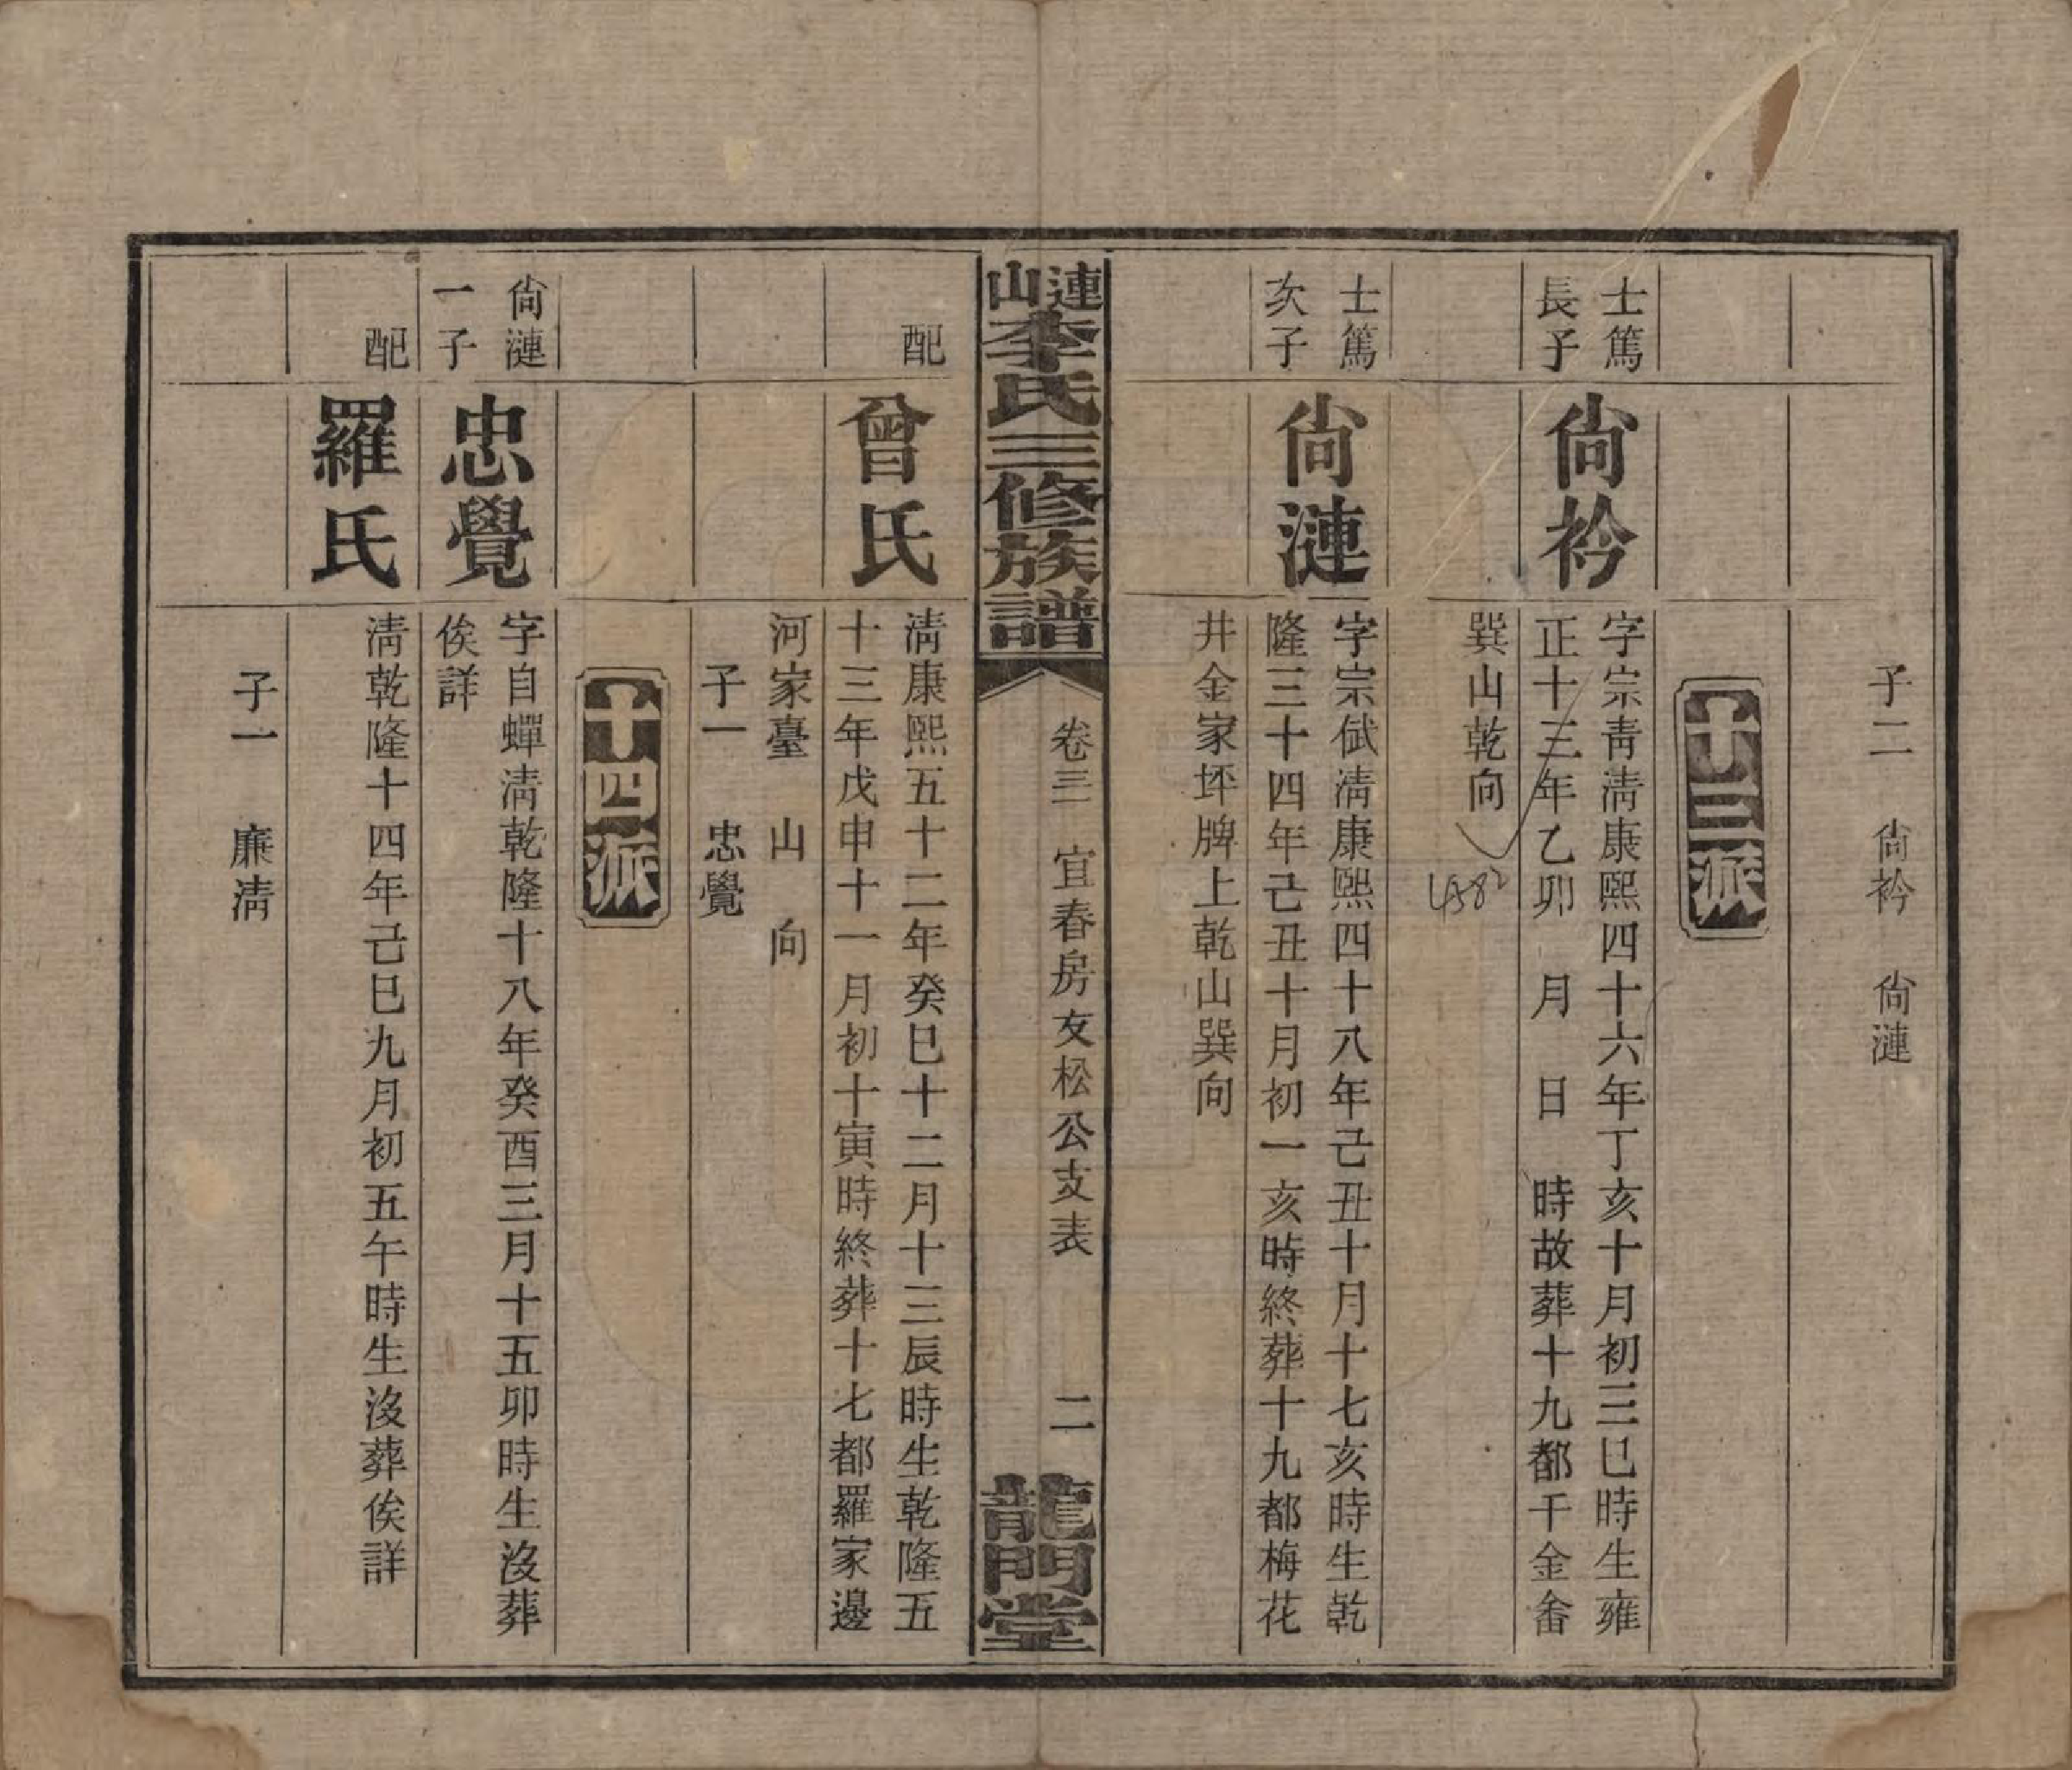 子二　尙衿　尙漣
十三派
士篤
長子
尙衿
字宗靑淸康熙四十六年丁亥十月初三巳時生雍
正十三年乙卯　月　日　時故葬十九都千金畨
巽山乾向
士篤
次子
尙漣
字宗弑淸康熙四十八年己丑十月十七亥時生乾
隆三十四年己丑十月初一亥時終葬十九都梅花
井金家坪牌上乾山巽向
漣山李氏三修族譜
卷三　宜春房友松公支表
二
龍門堂
配
曾氏
淸康熙五十二年癸巳十二月十三辰時生乾隆五
十三年戊申十一月初十寅時終葬十七都羅家邊
河家臺　山　向
子一　忠覺
十四派
尙漣
一子
忠覺
字自蟬淸乾隆十八年癸酉三月十五卯時生沒葬
俟詳
配
羅氏
淸乾隆十四年己巳九月初五午時生沒葬俟詳
子一　廉淸